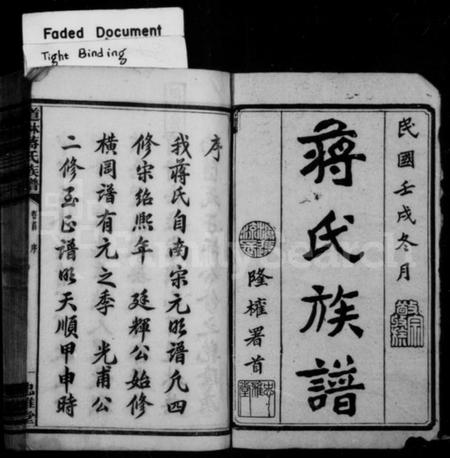 Faded Document
Tight Binding
民國壬戌冬月
蔣氏族譜
隆權署首
序
我蔣氏自南宋元明譜凡四
修宋紹熙年 廷輝公始修
橫岡譜有元之季 光甫公
二修玉止譜明天順甲申時
蔣氏族譜
卷首 序
FamilySearch